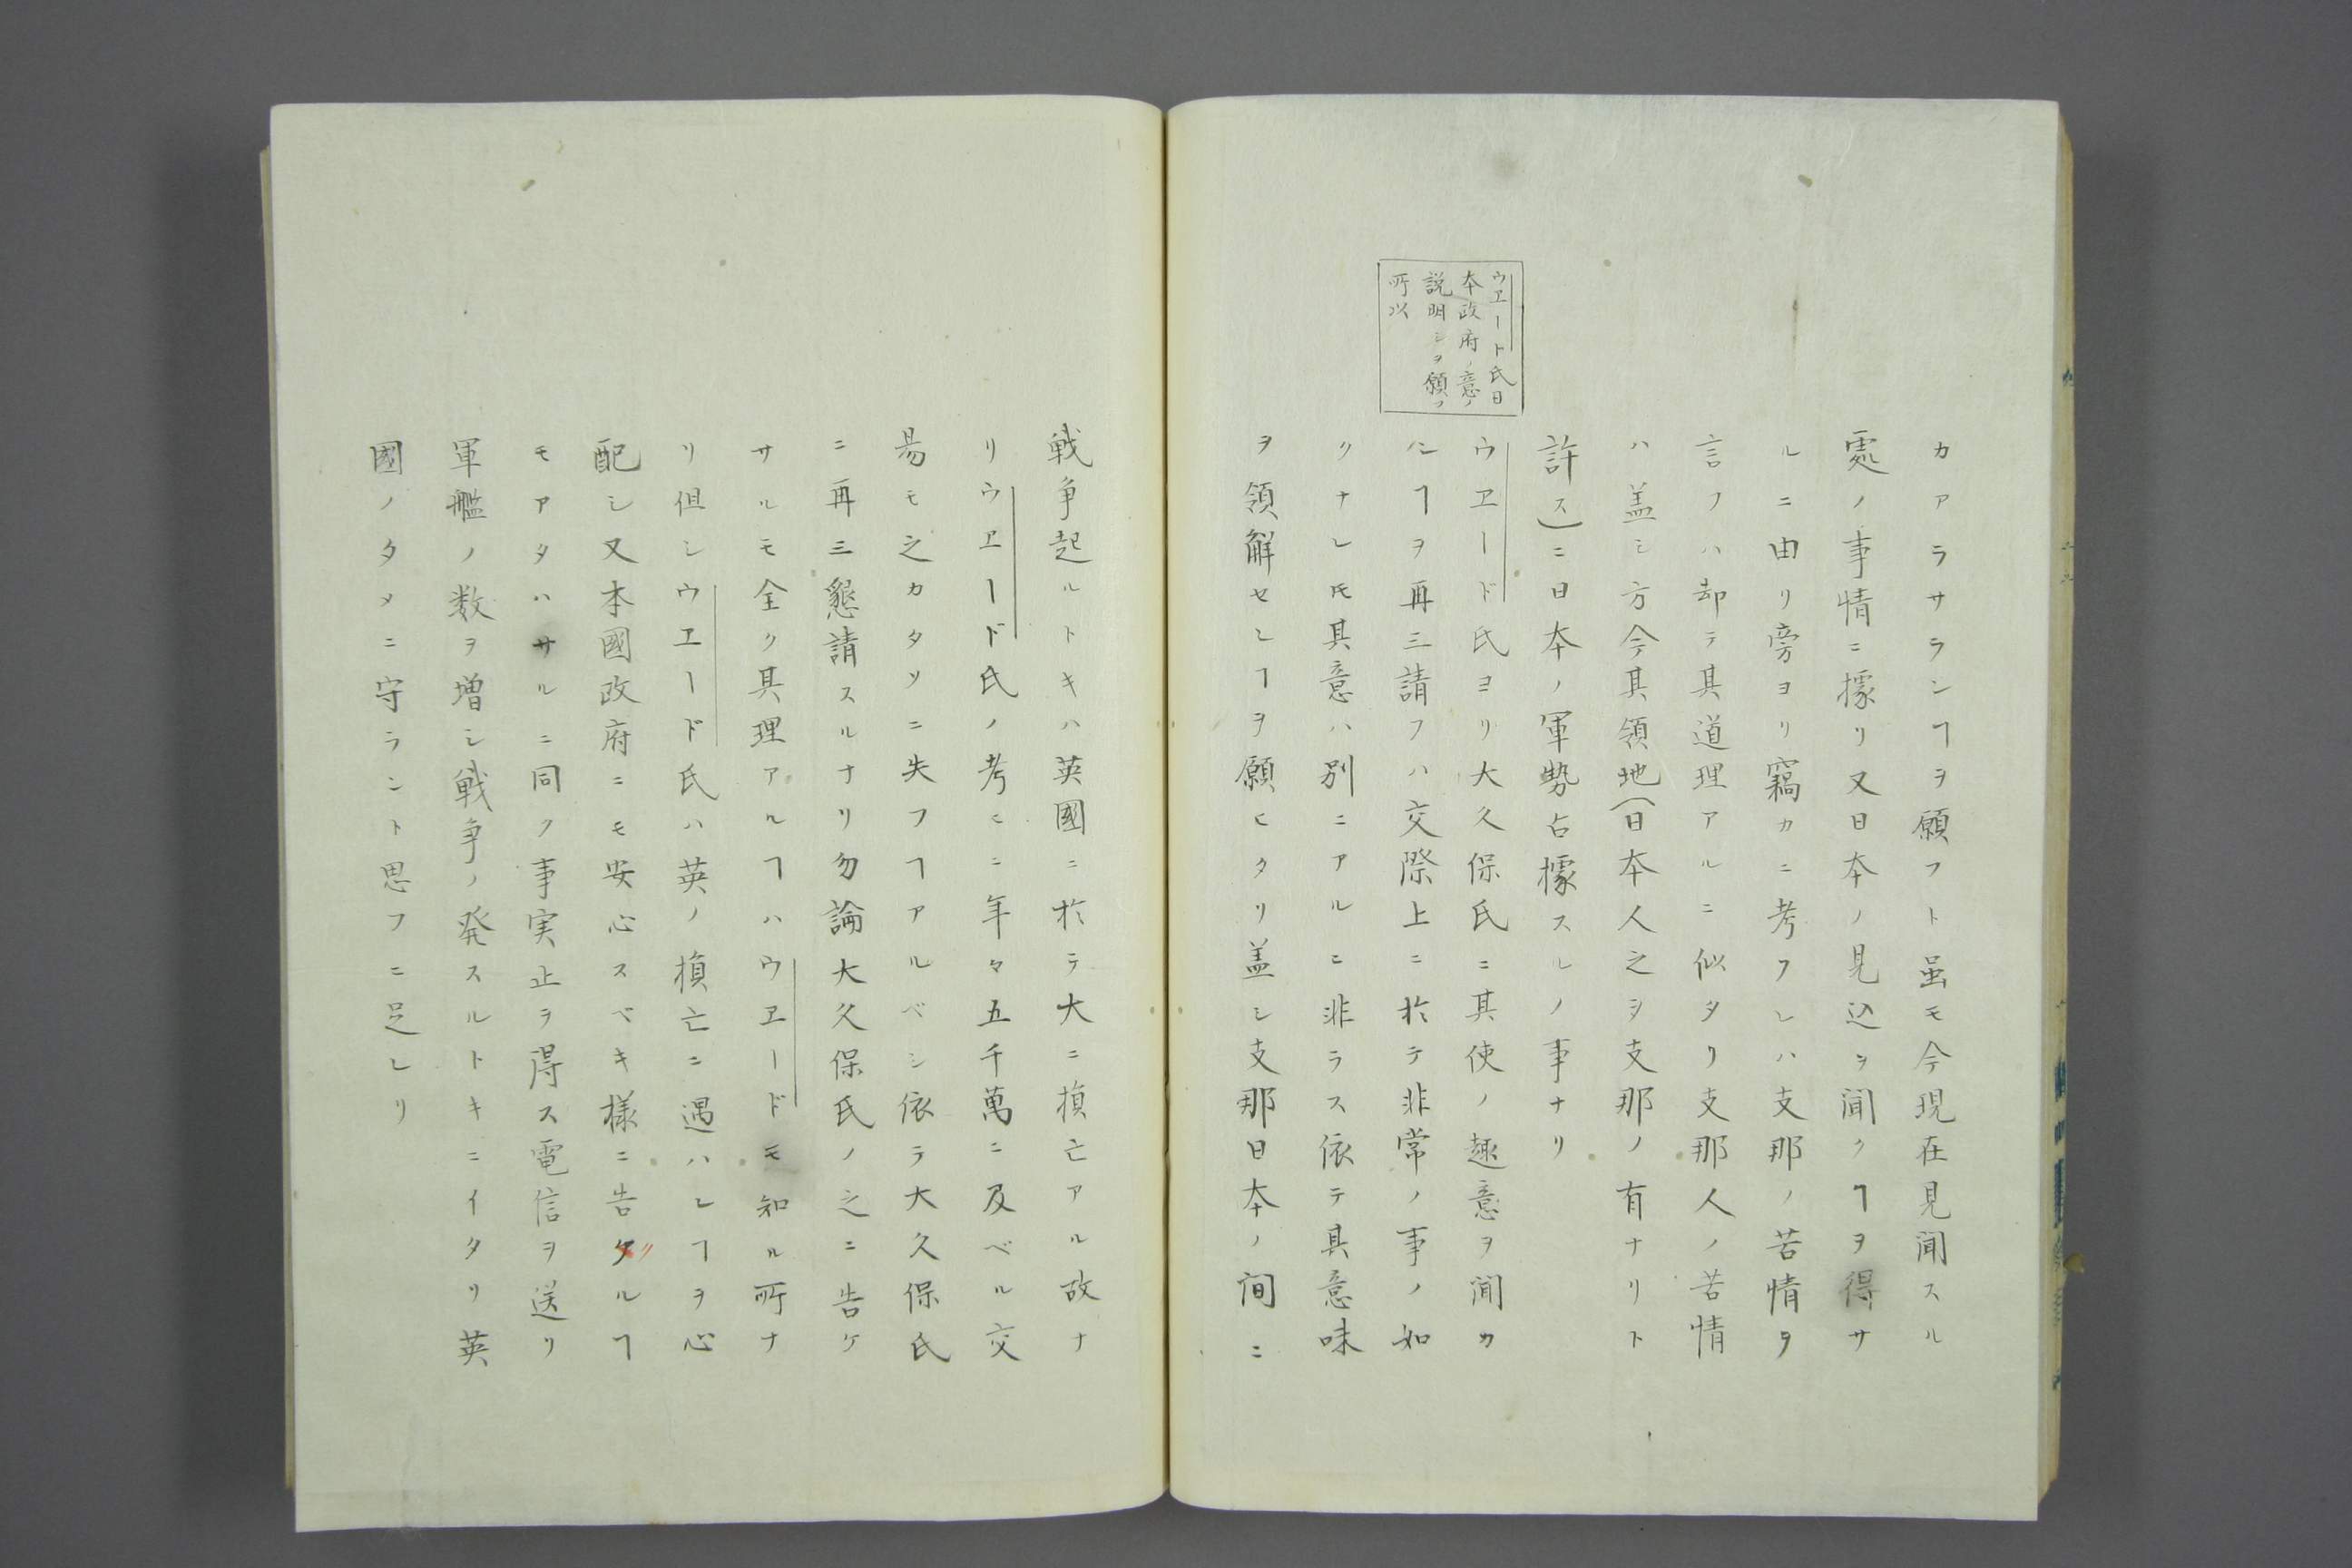 カアラサランヿヲ願フト雖モ今現在見聞スル
處ノ事情ニ據リ又日本ノ見込ヲ聞クヿヲ得サ
ルニ由リ旁ヨリ竊カニ考フレハ支那ノ苦情ヲ
言フハ却テ其道理アルニ似タリ支那人ノ苦情
ハ盖シ方今其領地(日本人之ヲ支那ノ有ナリト
許ス)ニ日本ノ軍勢占據スルノ事ナリ
ウエート氏日
本政府ノ意ノ
説明シヲ願フ
所以
ウエード氏ヨリ大久保氏ニ其使ノ趣意ヲ聞カ
ンヿヲ再三請フハ交際上ニ於テ非常ノ事ノ如
クナレ𪜈其意ハ別ニアルニ非ラス依テ其意味
ヲ領解セレヿヲ願ヒタリ盖シ支那日本ノ间ニ
戦争起ルトキハ英國ニ於テ大ニ損亡アル故ナ
リウエード氏ノ考ニ二年々五千萬ニ及ベル交
易モ之カタメニ失フヿアルベシ依テ大久保氏
ニ再三懇請スルナリ勿論大久保氏ノ之ニ告ケ
サルモ全ク其理アルヿハウエードモ知ル所ナ
リ但シウエード氏ハ英ノ損亡ニ遇ハレヿヲ心
配シ又本國政府ニモ安心スベキ様ニ告グルヿ
モアタハサルニ同ク事実止ヲ得ス電信ヲ送リ
軍艦ノ数ヲ増シ戦争ノ発スルトキニイタリ英
國ノタメニ守ラント思フニ足レリ